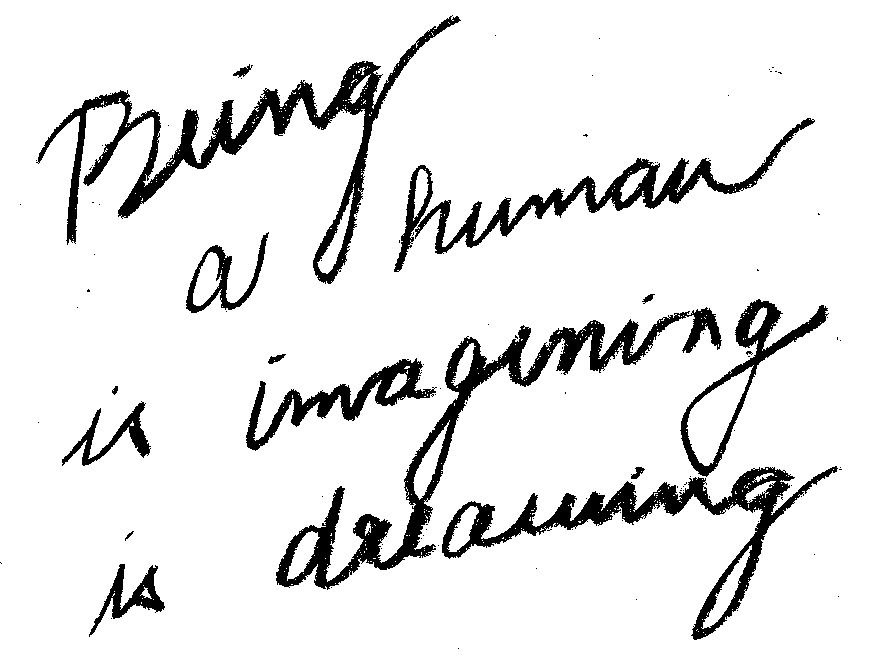 Being
a human
is imagining
is dreaming